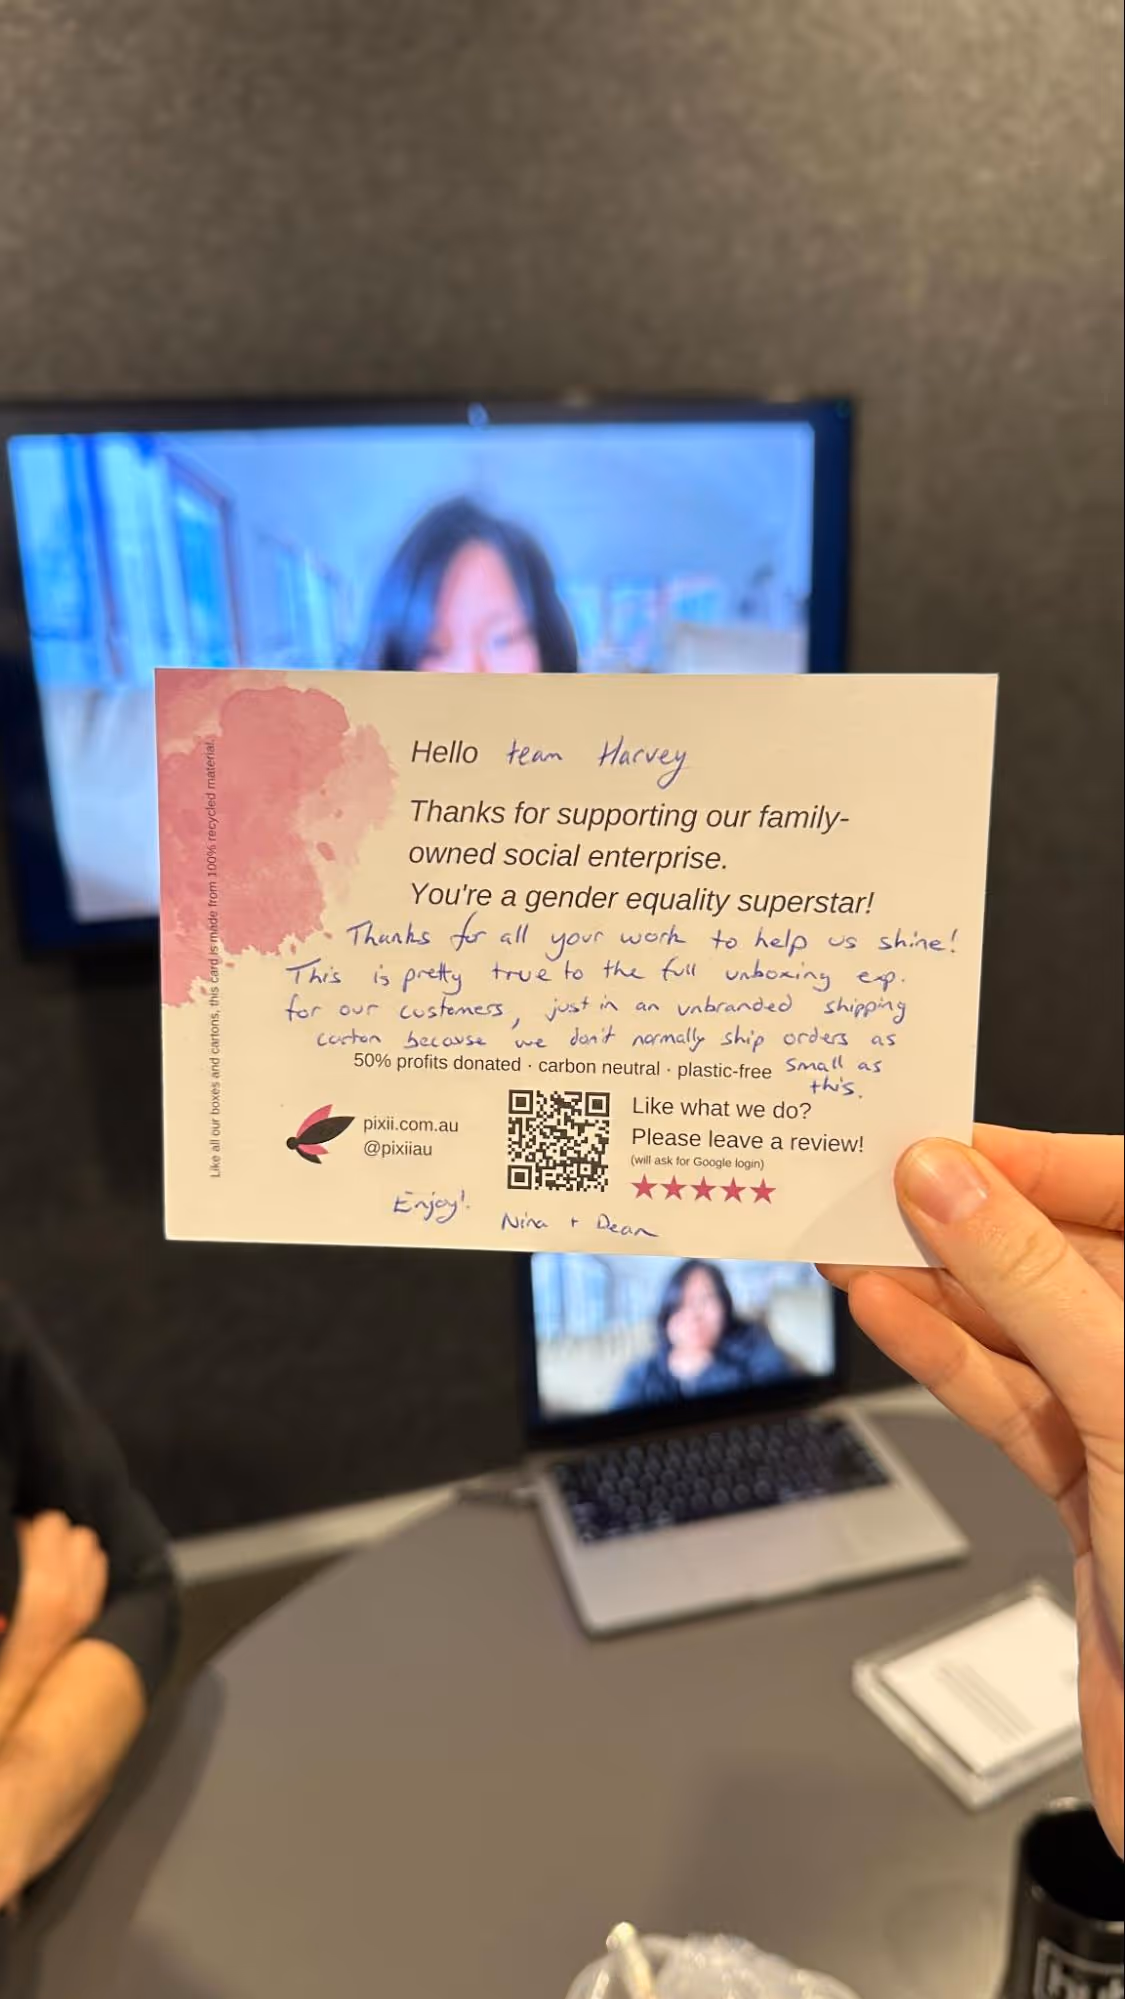 Hello team Harvey
Thanks for supporting our family-
owned social enterprise.
You're a gender equality superstar!
Thanks for all your work to help us shine!
This is pretty true to the full unboxing exp.
for our customers, just in an unbranded shipping
carton because we don't normally ship orders as
small as
this.
50% profits donated · carbon neutral · plastic-free
pixii.com.au
@pixiiau
Like what we do?
Please leave a review!
(will ask for Google login)
Enjoy!
Nina + Dean
Like all our boxes and cartons, this card is made from 100% recycled material.